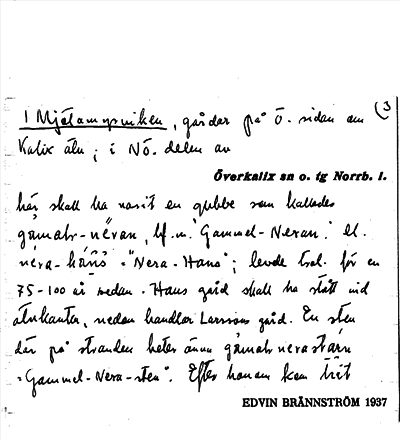 1 Mjölamysviken, gårdar på Ö. sidan om (3
Kalix älv; i NÖ. delen av
Överkalix sn o. tg Norrb. l.
här skall ha varit en gubbe som kallades
bf. m. "Gammel-Neran." el.
"Nera-Hans"; levde trol. för en
75-100 år sedan. Hans gård skall ha stått vid
älvkanten, nedan handlar Larssons gård. En sten
där på stranden heter ännu
"Gammel-Nera-sten". Efter honom kom hit
EDVIN BRÄNNSTRÖM 1937